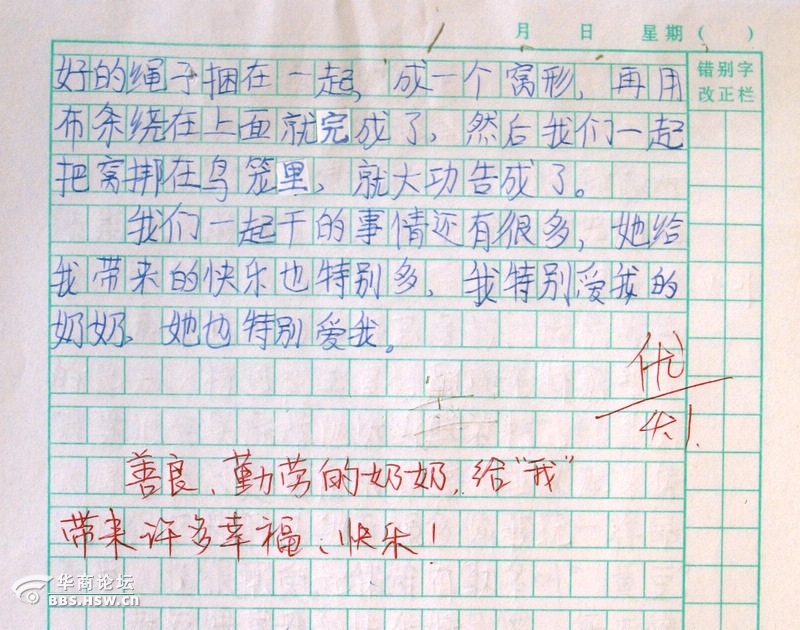 月 日 星期( )
错别字
改正栏
好的绳子捆在一起，成一个窝形，再用
布条绕在上面就完成了，然后我们一起
把窝挷在鸟笼里，就大功告成了。
我们一起干的事情还有很多，她给
我带来的快乐也特别多，我特别爱我的
奶奶，她也特别爱我。
优
4.1.
善良、勤劳的奶奶，给“我”
带来许多幸福、快乐！
华商论坛
BBS.HSW.CN